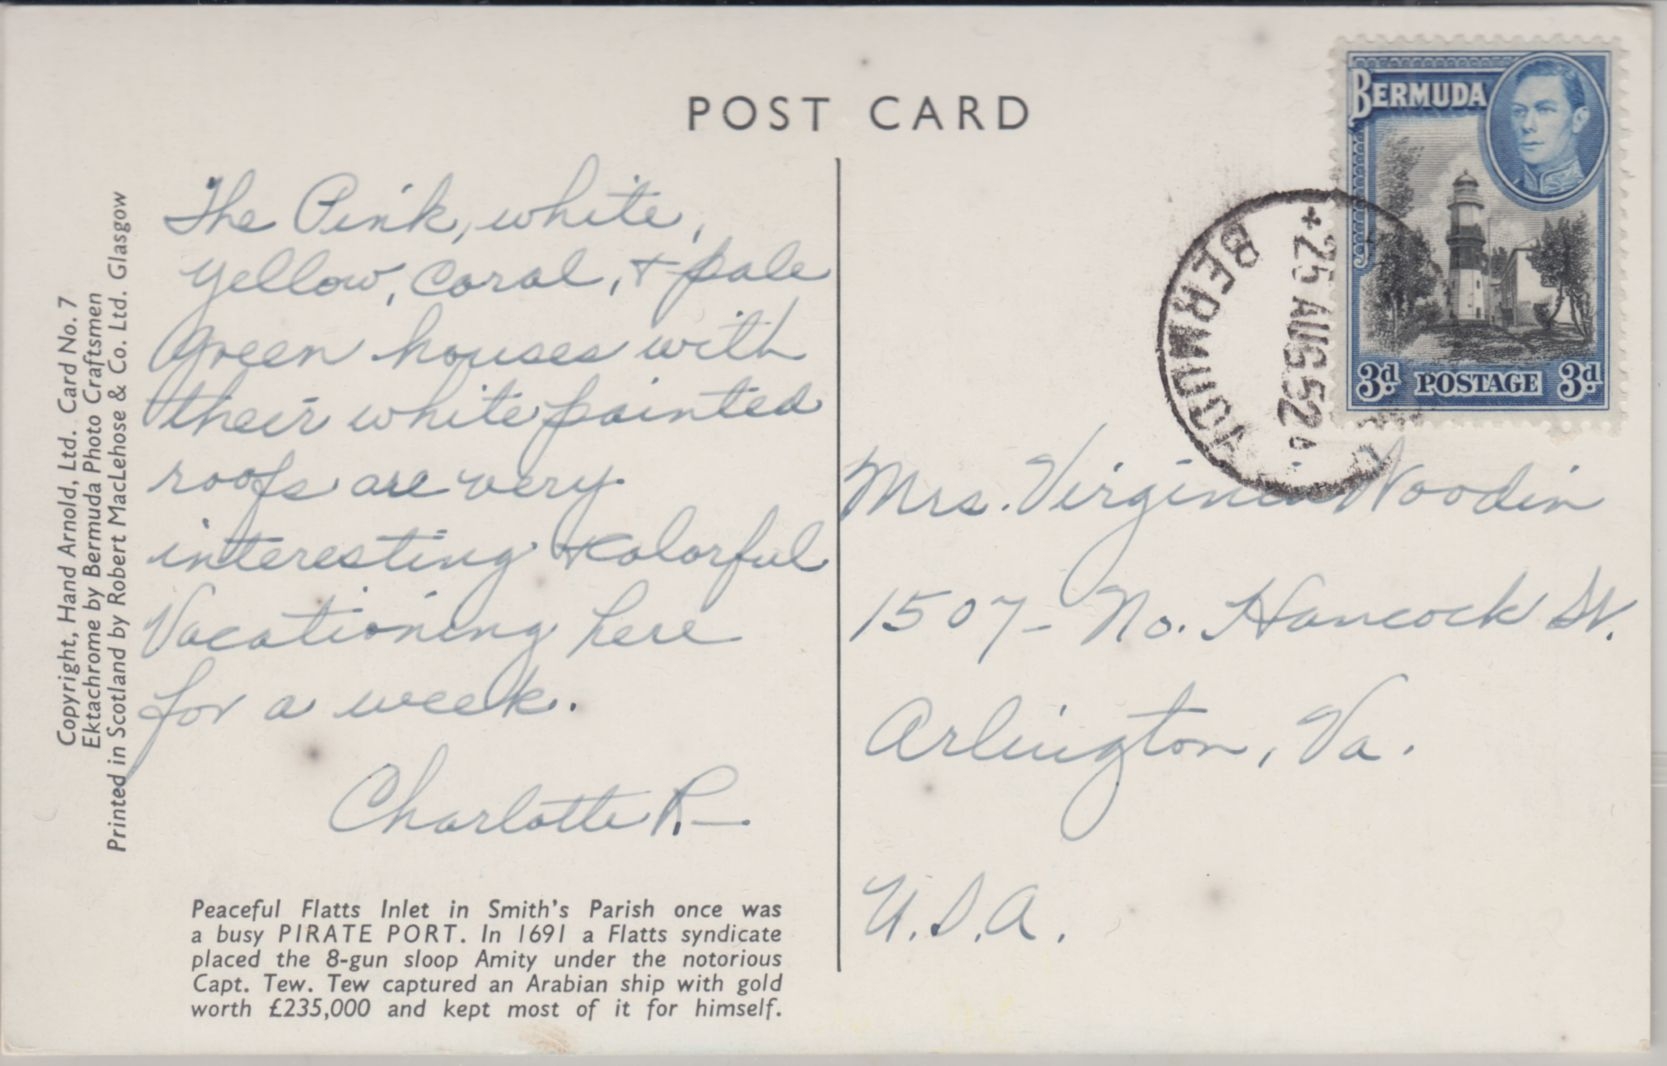 POST CARD
The Pink, white,
yellow, coral, + pale
green houses with
their white painted
roofs are very
interesting + colorful
Vacationing here
for a week.
Charlotte R.—
Peaceful Flatts Inlet in Smith's Parish once was
a busy PIRATE PORT. In 1691 a Flatts syndicate
placed the 8-gun sloop Amity under the notorious
Capt. Tew. Tew captured an Arabian ship with gold
worth £235,000 and kept most of it for himself.
Copyright, Hand Arnold, Ltd. Card No. 7
Ektachrome by Bermuda Photo Craftsmen
Printed in Scotland by Robert MacLehose & Co. Ltd. Glasgow
BERMUDA
3d POSTAGE 3d
BERMUDA
25 AUG 52
Mrs. Virginia Woodin
1507 - No. Hancock St.
Arlington, Va.
U.S.A.